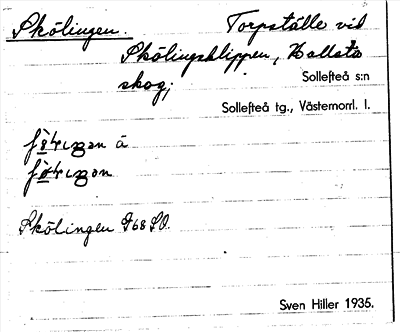 Skölingen. Torpställe vid
Skölingsklippen, Hallsta
skog;
Sollefteå s:n
Sollefteå tg., Västernorrl. l.
å
Skölingen G68SO.
Sven Hiller 1935.